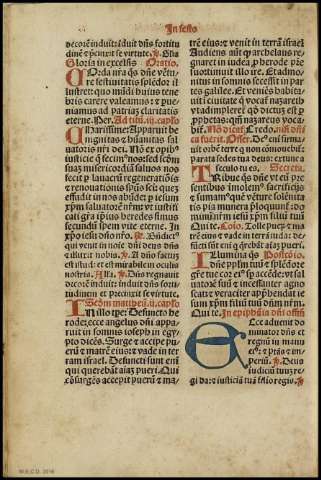 In festo
decorē induit: induit dn̄s fortitu
dinē ⁊ p̄cinxit se virtute.
Gloria in excelsis Oratio.
Corda nr̄a qs dn̄e vētu-
re festiuitatis splēdor il
lustret: quo mūdi huius tene
bris carere valeamus: ⁊ p̄ue-
niamus ad patriaȝ claritatis
eterne. Per. Ad titū .iii. capło
Charissime: Apparuit be
nignitas ⁊ hūanitas sal
uatoris nr̄i dei. Nō ex opib⁹
iusticie q̄ fecim⁹ nos: sed scd̄m
suaȝ misericordiā saluos nos
fecit p lauacrū regenerationis
⁊ renouationis spūs scī: queȝ
effudit in nos abūde: p iesum
xp̄m saluatorē nr̄m: vt iustifi
cati gr̄a ip̄ius heredes simus
secundū spem vite eterne. In
xp̄o iesu dn̄o nr̄o. Bn̄dict⁹
qui venit in noīe dn̄i: deus dn̄s
⁊ illuxit nobis. A dn̄o factuȝ
est istud: et est mirabile in oculis
nostris. Alla. Dn̄s regnauit
decorē induit: induit dn̄s for-
titudinem et precinxit se virtute.
Scd̄m mattheū .ii. capło
In illo tpe: Defuncto he
rode: ecce angelus dn̄i appa
ruit in somnis ioseph in egy-
pto dicēs. Surge ⁊ accipe pu-
erū ⁊ matrē eius: ⁊ vade in ter
ram israel. Defuncti sunt eni
qui querebāt aīaȝ pueri. Qui
cōsurgēs accepit puerū ⁊ ma-
trē eius: et venit in terrā israel
Audiens aūt q archelaus re-
gnaret in iudea p herode pr̄e
suo: timuit illo ire. Et admo-
nitus in somnis secessit in par
tes galilee. Et veniēs habita-
uit in ciuitate q̄ vocat̄ nazareth
vt adimpleret̄ qd dictuȝ est p
prophetas: qm nazareus voca-
bit̄. Nō dicit̄ Credo. nisi dn̄i
ca fuerit. Offer. De⁹ eni firma-
uit orbē terre q non cōmouebit̄:
parata sedes tua deus: ex tunc a
seculo tu es. Secreta.
Tribue qs dn̄e: vt eū pre-
sentibus īmolem⁹ sacrificijs
⁊ sumam⁹ quē vēture solenita
tis pia munera p̄loquunt̄ do-
minū nostrū iesū xp̄m filiū tuū
Qui te. Cōio. Tolle pueȝ ⁊ ma
trē eius ⁊ vade in terrā iuda: de
fūcti sunt eni q̄ q̄rebāt aīaȝ pueri.
Illumina qs Postcōio.
dn̄e pplm̄ tuū: ⁊ splēdore
gr̄e tue cor ei⁹ sp accēde: vt sal
uatorē suū ⁊ incessanter agnos
cat et veraciter app̄hendat ie
sum xp̄m filiū tuū dn̄m nr̄m.
Qui te. In epiphāia dn̄i offm̄
Ecce aduenit do
minator dn̄s et
regnū in manu
ei⁹: ⁊ ptās ⁊ im
periū. Deus
iudiciū tuuȝ re
gi da: ⁊ iusticiā tuā filio regis.